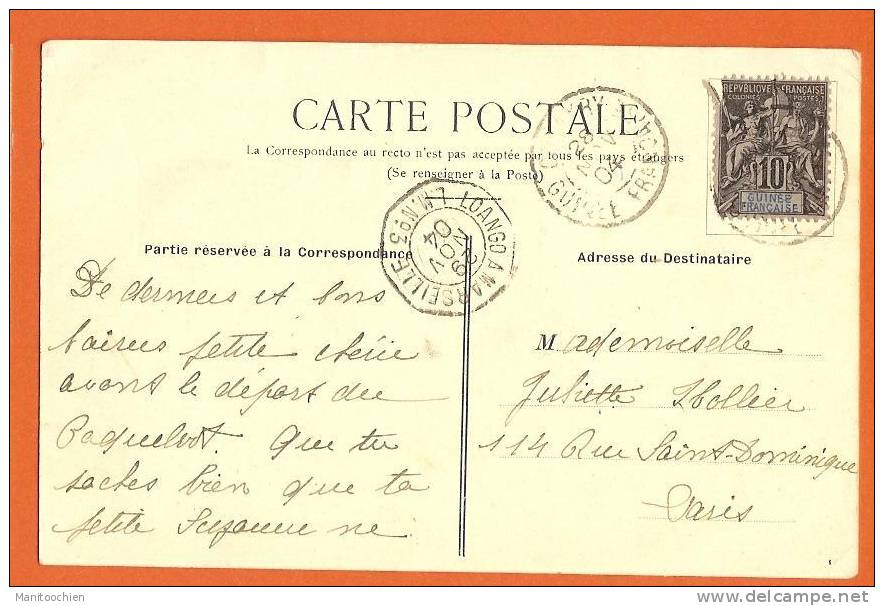 CARTE POSTALE
La Correspondance au recto n'est pas acceptée par tous les pays étrangers
(Se renseigner à la Poste)
REPVBLIQVE FRANÇAISE
COLONIES POSTES
10
GUINÉE
FRANÇAISE
28
NOV
04
GUINÉE FRANÇ
LOANGO A MARSEILLE L.M. No.3
29
NOV
04
Partie réservée à la Correspondance
Adresse du Destinataire
De derniers et bons
baisers petite chérie
avant le départ du
Paquebot. Que tu
saches bien que ta
petite Suzanne ne
Mademoiselle
Juliette Hollier
114 Rue Saint-Dominique
Paris
Manitoochien
delcampe.net